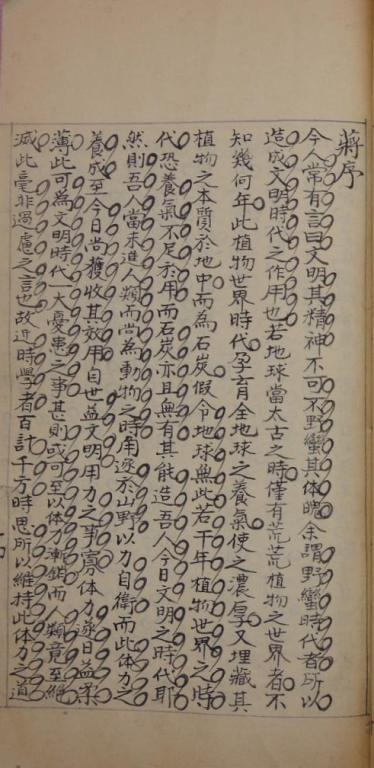 蔣序
今人常有言曰文明其精神不可不野蠻其体魄余謂野蠻時代者所以
造成文明時代之作用也若地球當太古之時僅有荒荒植物之世界者不
知幾何年此植物世界時代孕育全地球之養氣使之濃厚又埋藏其
植物之本質於地中而為石炭假令地球無此若干年植物世界之時
代恐養氣不足於用而石炭亦且無有其能造吾人今日文明之時代耶
然則吾人當未進人類而尚為動物之時角逐於山野以力自衛而此体力之
養成至今日尚獲收其效用自世益文明用力之事寡体力逐日益柔
薄此可為文明時代一大憂患之事甚則或可至以体力漸銷而人類竟至絕
滅此毫非過慮之言也故近時學者百計千方時思所以維持此体力之道